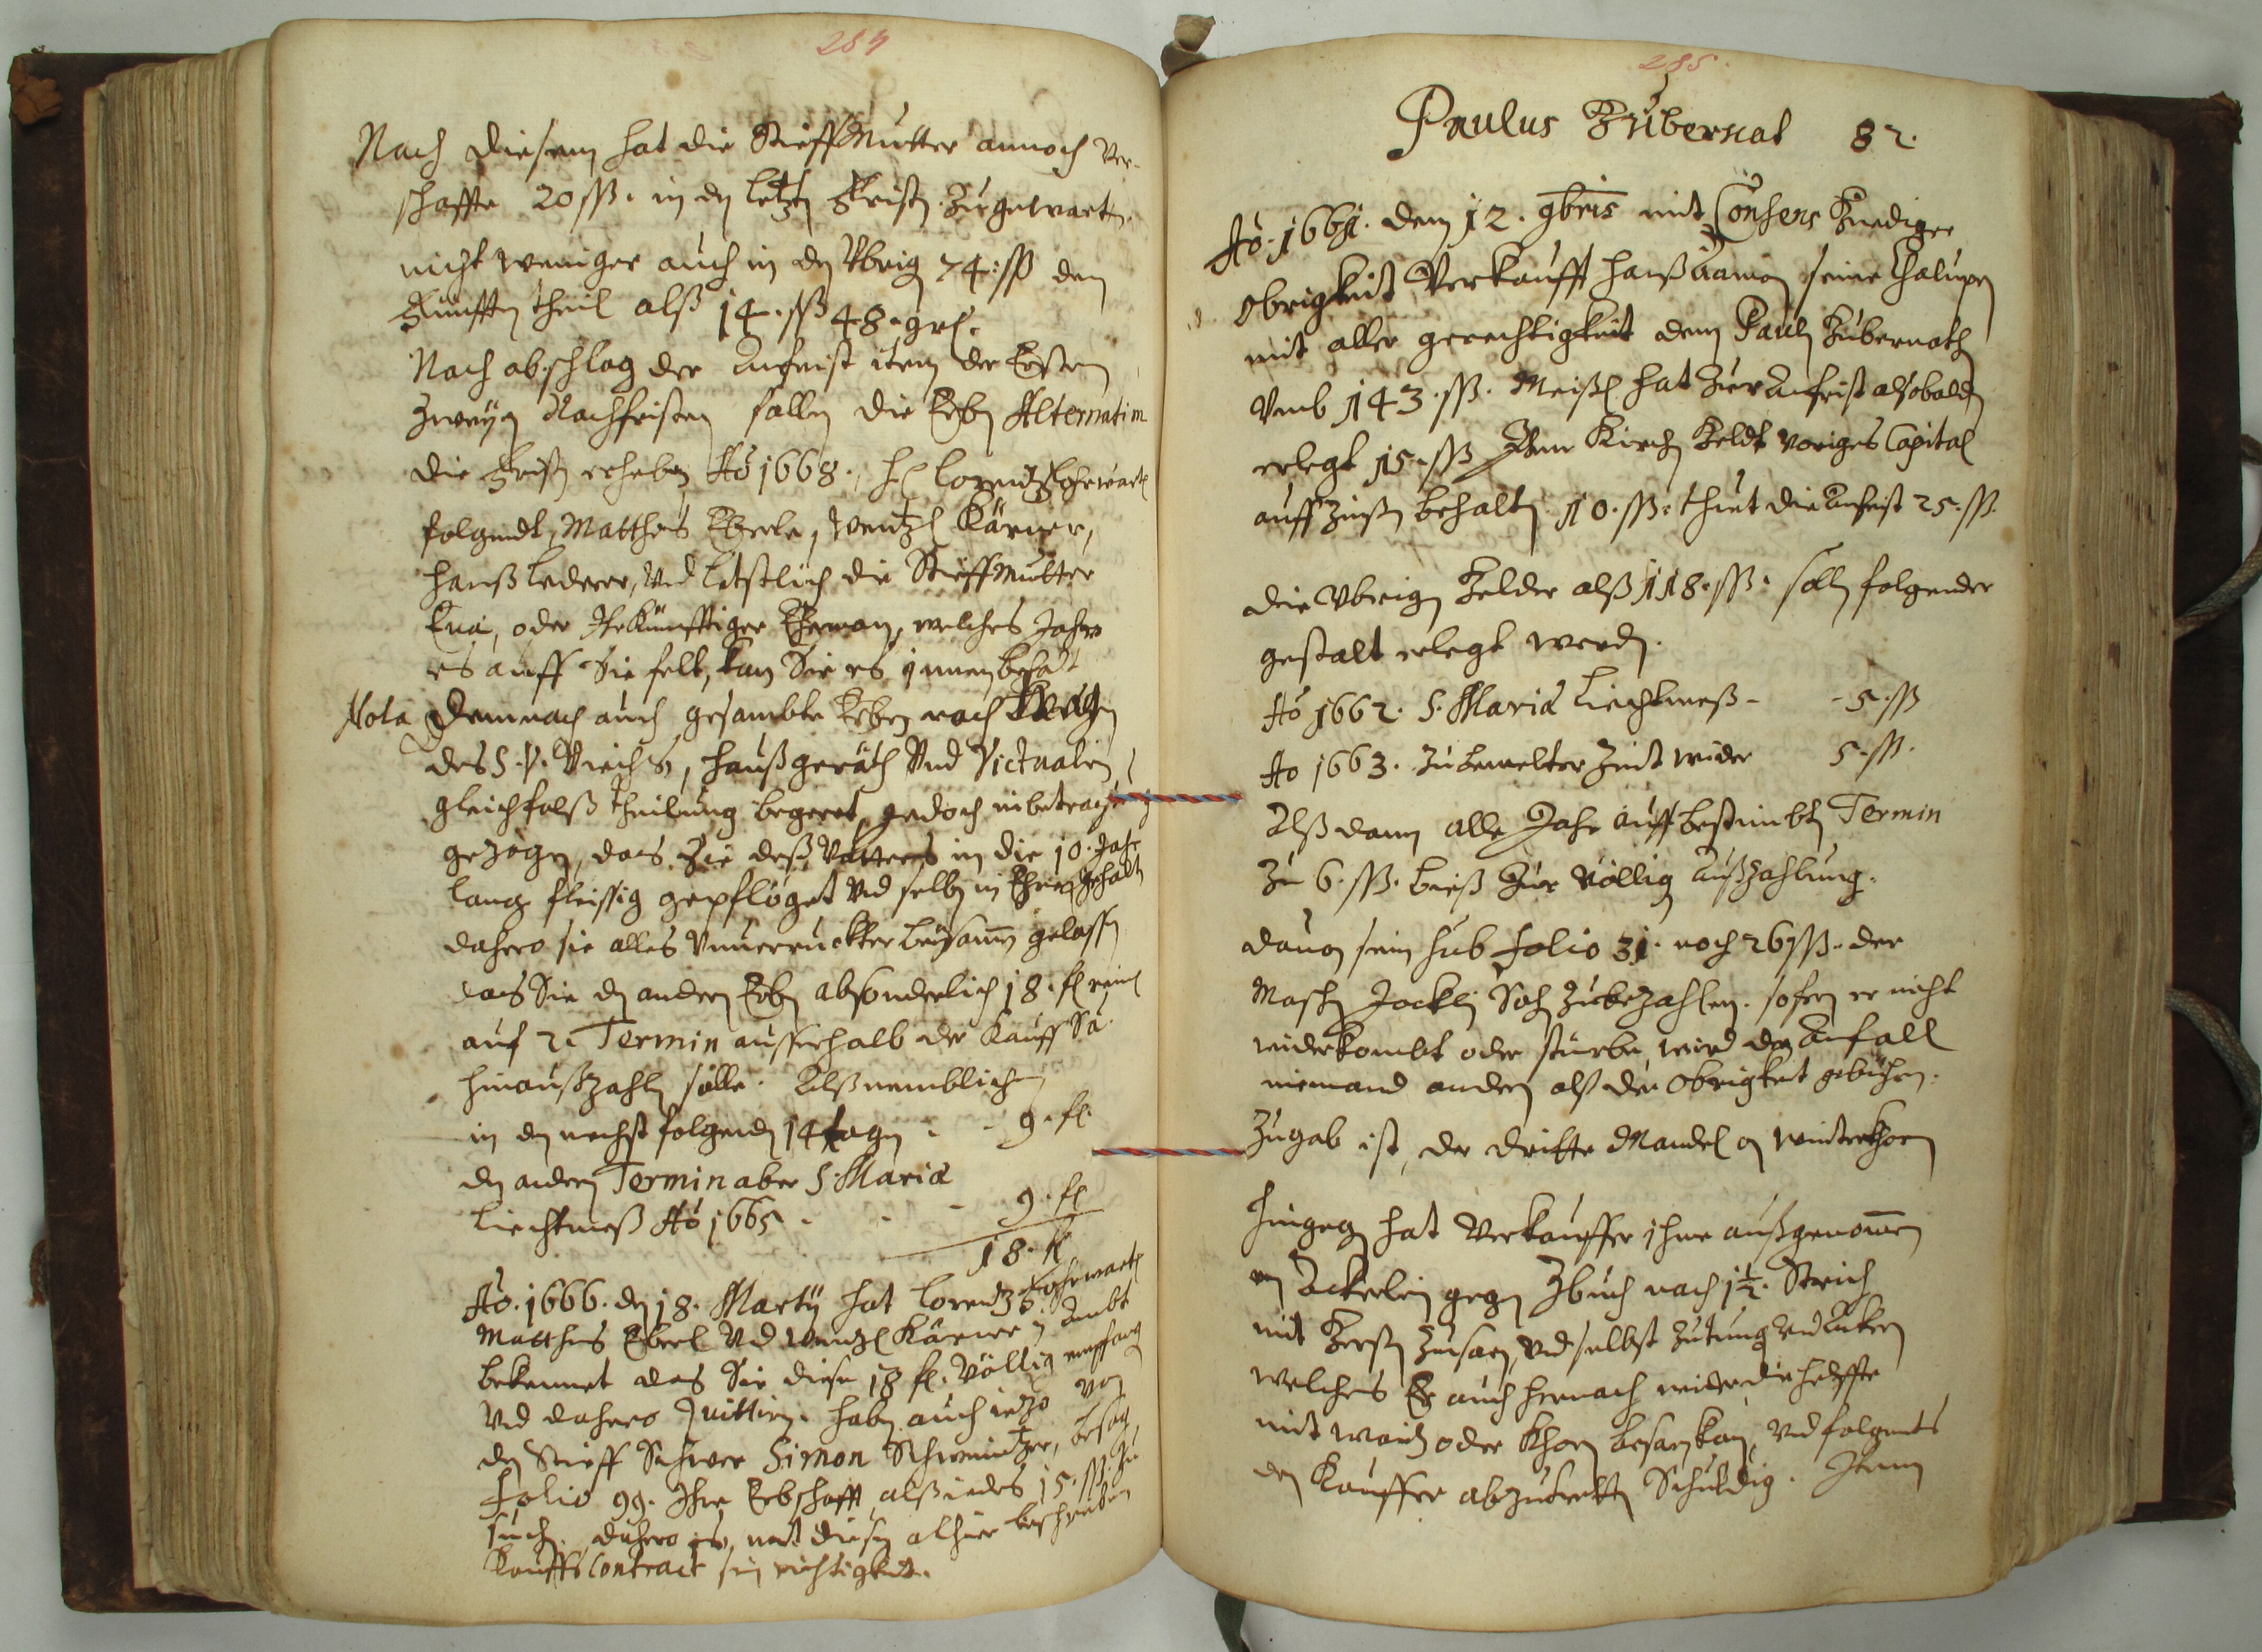 284
Nach diesem hat die Stieff Mutter annoch ver-
schaffte 20 ß. in dn letztn Fristn. Zugewartn.
nicht weniger auch in dn Vbrign 74. ß den
Fünfftn theil alß 14. ß 48. grl.
Nach abschlag der Anfrist item der Ersten
Zweyen Nachfristen solln die Erbn Alternatim
die Fristn erheben, Aõ 1668. Lorentz
folgendt, Matthes Eberle, Wentzl Kärner,
Hanß Lederer, Vnd letstlich die Stieff Mutter
Eua, oder Ihr Künfftiger Eheman, welches Jahr
es auff Sie felt, kan Sie es jnnen behalt
Nota Demnach auch gesambte Erben nach
des S. V. Viechs, Haußgeräth Vnd Victualien
gleichfalß theilung begeret, jedoch inbetrachtung
gezogen, das Sie deß Vatters in die 10. Jahr
lang fleissig gepfleget Vnd selbn in Ehren gehaltn
dahero sie alles Vnuerruckter beysamen gelassn
das Sie dn andern Erbn absonderlich 18. fl reinl
auf 2. Termin ausserhalb der Kauff Sa.
hinaußzahln solle. Alß nemblichn
in dn nechst folgendn 14 tagn - - 9. fl.
dn andern Termin aber S. Mariæ
Liechtmeß Aõ 1665 - - - 9. fl
18. fl
Aõ. 1666. dn 18. Martij hat Lorentz
Matthes Eberl Vnd Wentzl Kärner in Ambt
bekennet das Sie diese 18 fl. Völlig empfang
Vnd dahero Quittirn. Habn auch ietzo von
dn Stieff Schwer Simon Schmintzer, besag
Folio 99. Ihre Erbschafft alß iedes 15. ß. Zu
such. dahero es, mit diesn alhier beschriebnen
Kauffs Contract sein richtigkeit.
285.
Paulus Gubernat 82.
Aõ. 1661. dem 12. 9bris mit Consens Gnediger
Obrigkeit Verkaufft Hanß seine Chalupen
mit aller gerechtigkeit dem Pauln Gubernath
Vmb 143. ß. Meißl hat Zur Anfrist alsobaldn
erlegt 15. ß Dem Kirchn Geldt voriges Capital
auff Zinsn behaltn 10. ß. thuet die Anfrist 25. ß.
die Vbrign Gelder alß 118. ß. solln folgender
gestalt erlegt werdn.
Aõ 1662. S. Mariæ Liechtmeß - - 5. ß
Ao 1663. Zu bemelter Zeit wider 5. ß.
Alß dann alle Jahr auff bestimbtn Termin
Zu 6. ß. bieß Zur Völlign Außzahlung.
dauon sein sub Folio 31. noch 26 ß. der
Maschn Jockln Sohn Zubezahlen. sofern er nicht
widerkombt oder stürbe wird der Anfall
niemand andern alß der Obrigkeit gebühren.
Zugab ist, der dritte Mandel an Winterkhorn
Hingegn hat Verkauffer ihme außgenommen
ein Äckerlein gegn Zbuch nach 1½. Strich
mit Gerstn Zusaen, Vnd selbst Zutung Vnd Ackern
welches Er auch hernach wider die helffte
mit Waitz oder Khorn besaen kan, Vnd folgents
den Kauffer abzutretten Schuldig. Item